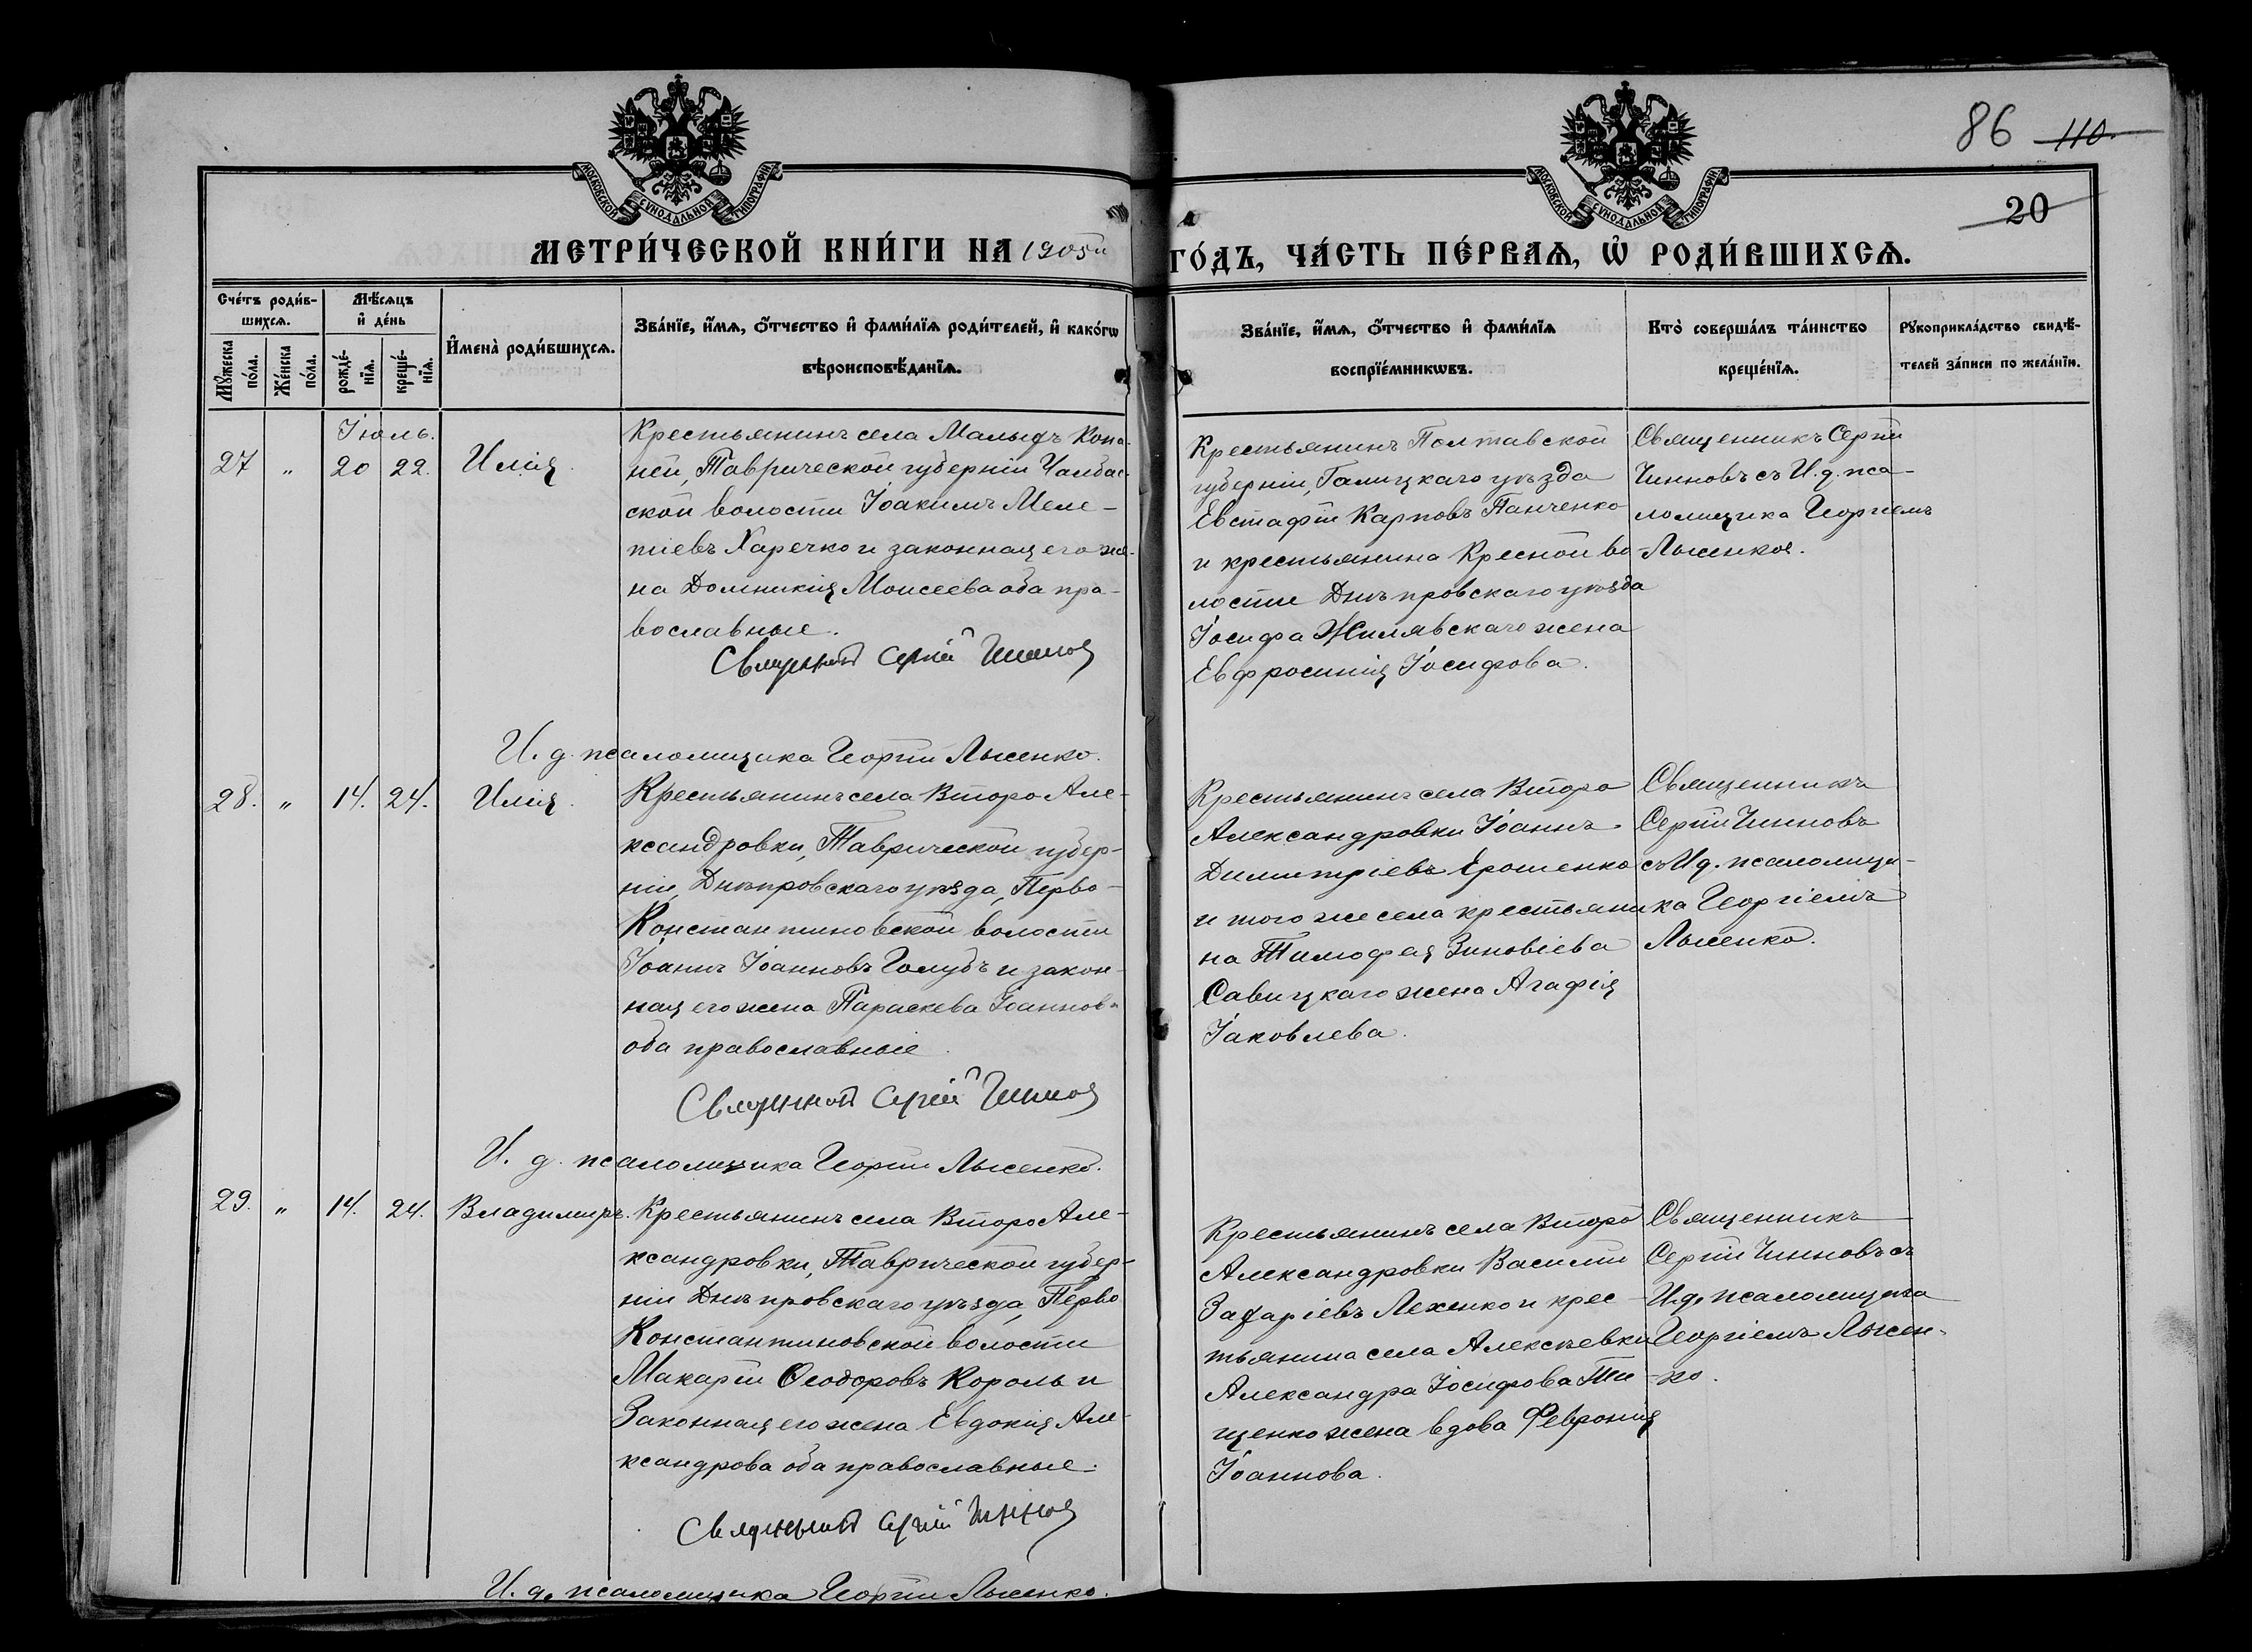 86 110.
20
МОСКОВСКОЙ СѴНОДАЛЬНОЙ ТИПОГРАФІИ
МОСКОВСКОЙ СѴНОДАЛЬНОЙ ТИПОГРАФІИ
МЕТРИ́ЧЕСКОЙ КНИ́ГИ НА 1905й ГО́ДЪ, ЧА́СТЬ ПЕ́РВАѦ, Ѽ РОДИ́ВШИХСѦ.
Сче́тъ роди́в-
шихсѧ.
Мꙋ́жеска по́ла.
Же́нска по́ла.
Мѣ́сѧцъ
и҆ де́нь
рожде́-
нїѧ.
креще́-
нїѧ.
И҆мена̀ роди́вшихсѧ.
Зва́нїе, и҆́мѧ, ѻ҆́тчество и҆ фами́лїѧ роди́телей, и҆ како́гѡ
вѣроисповѣ́данїѧ.
Зва́нїе, и҆́мѧ, ѻ҆́тчество и҆ фами́лїѧ
воспрїе́мникѡвъ.
Кто̀ соверша́лъ та́инство
креще́нїѧ.
Рꙋкоприкла́дство свидѣ́-
телей за́писи по жела́нїю.
Іюль.
27 " 20 22. Илія.
Крестьянинъ села Малыхъ Копа-
ней, Таврической губерніи Чалбас-
ской волости Іоакимъ Меле-
тіевъ Харечко и законная его же-
на Домникія Моисеева оба пра-
вославные.
Священникъ Сергій Чиннов
И. д. псаломщика Георгій Лысенко.
Крестьянинъ Полтавской
губерніи, Галицкаго уѣзда
Евстафій Карповъ Панченко
и крестьянина Кресной во-
лости Днѣпровскаго уѣзда
Іосифа Жилявскаго жена
Евфросинія Іосифова.
Священникъ Сергій
Чинновъ съ И. д. пса-
ломщика Георгіемъ
Лысенко.
28. " 14. 24. Илія.
Крестьянинъ села Второ Але-
ксандровки, Таврической губер-
ніи, Днѣпровскаго уѣзда, Перво-
Константиновской волости
Іоаннъ Іоанновъ Голубъ и закон-
ная его жена Параскева Іоаннова
оба православные.
Священникъ Сергій Чиннов
И. д. псаломщика Георгій Лысенко.
Крестьянинъ села Второ
Александровки Іоаннъ
Димитріевъ Ярошенко
и того же села крестьяни-
на Тимофея Зиновіева
Савицкаго жена Агафія
Іаковлева.
Священникъ
Сергій Чинновъ
съ И. д. псаломщи-
ка Георгіемъ
Лысенко.
29. " 14. 24. Владимиръ.
Крестьянинъ села Второ Але-
ксандровки, Таврической губер-
ніи Днѣпровскаго уѣзда, Перво
Константиновской волости
Макарій Ѳеодоровъ Король и
Законная его жена Евдокія Але-
ксандрова оба православные.
Священникъ Сергій Чиннов
И. д. псаломщика Георгій Лысенко.
Крестьянинъ села Второ
Александровки Василій
Захаріевъ Лехенко и крес-
тьянина села Алексѣевки
Александра Іосифова Ти-
щенко жена вдова Февронія
Іоаннова.
Священникъ
Сергій Чинновъ съ
И. д. псаломщика
Георгіемъ Лысен-
ко.